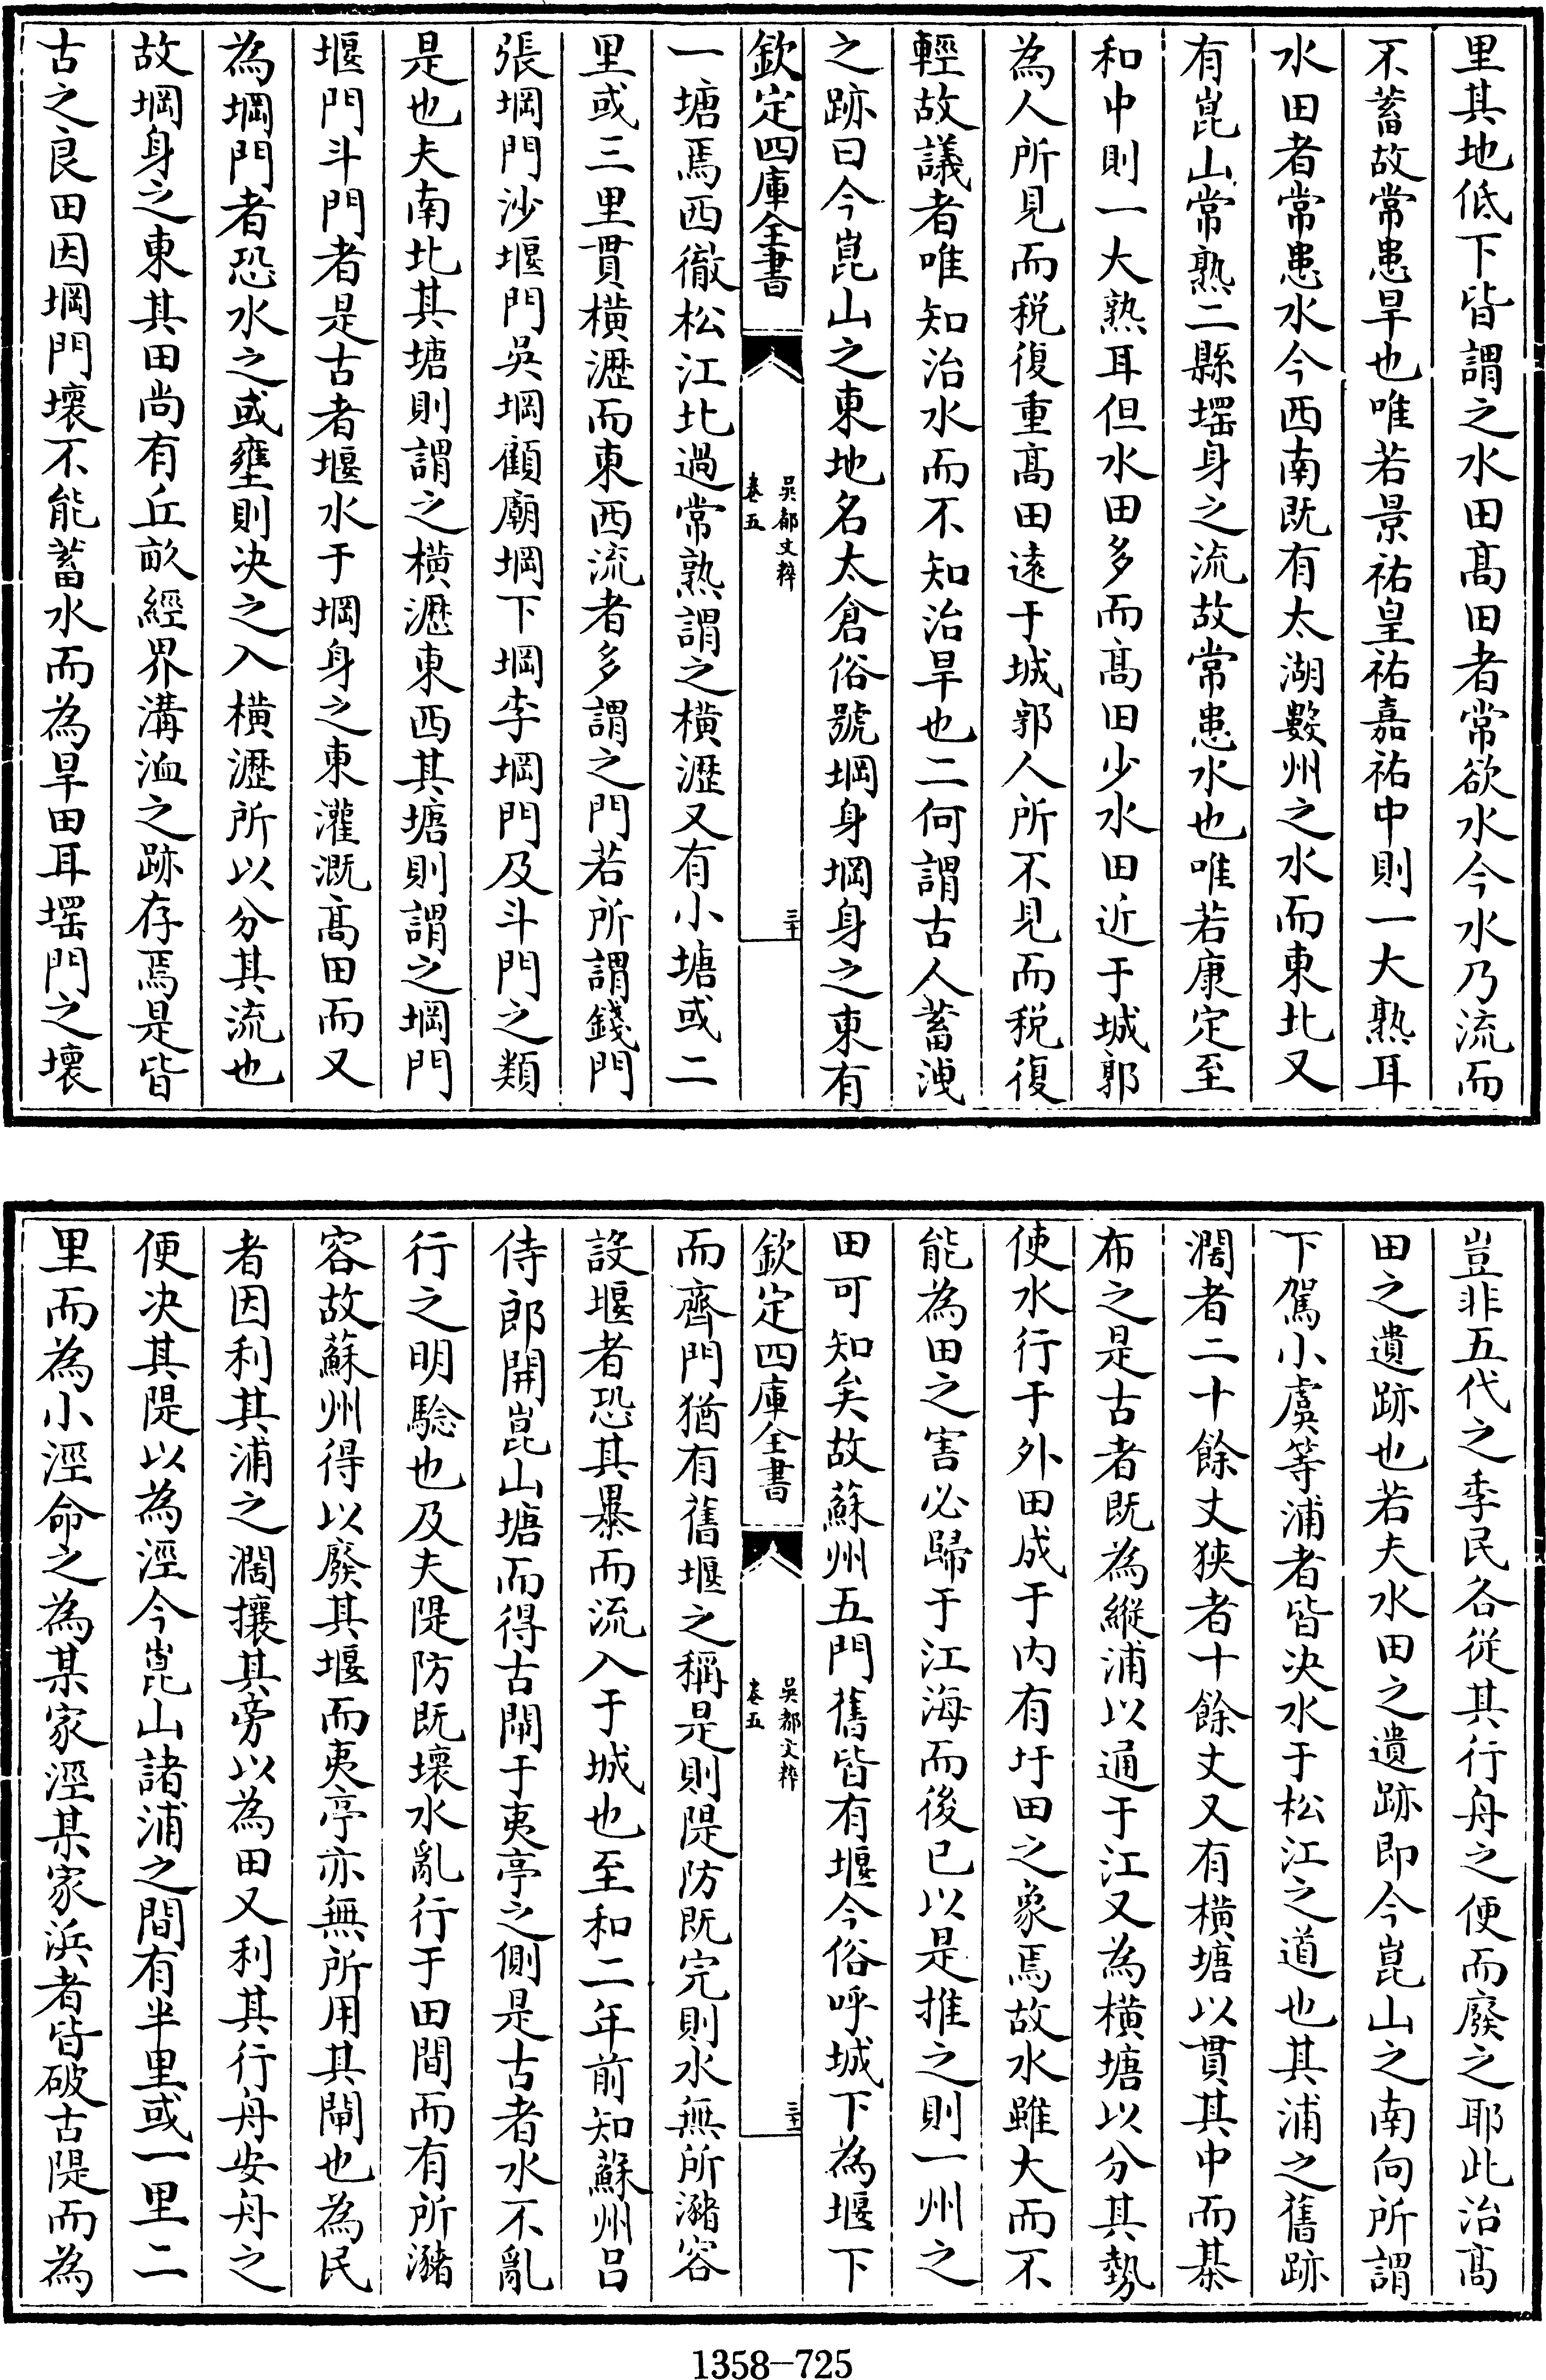 里其地低下皆謂之水田髙田者常欲水今水乃流而
不蓄故常患旱也唯若景祐皇祐嘉祐中則一大熟耳
水田者常患水今西南既有太湖數州之水而東北又
有崑山常熟二縣堽身之流故常患水也唯若康定至
和中則一大熟耳但水田多而髙田少水田近于城郭
為人所見而税復重髙田逺于城郭人所不見而税復
輕故議者唯知治水而不知治旱也二何謂古人蓄洩
之跡曰今崑山之東地名太倉俗號堈身堈身之東有
欽定四庫全書
吳都文粹
卷五
三十
一塘焉西徹松江北過常熟謂之橫瀝又有小塘或二
里或三里貫橫瀝而東西流者多謂之門若所謂錢門
張堈門沙堰門吳堈顧廟堈下堈李堈門及斗門之類
是也夫南北其塘則謂之橫瀝東西其塘則謂之堈門
堰門斗門者是古者堰水于堈身之東灌溉髙田而又
為堈門者恐水之或壅則决之入橫瀝所以分其流也
故堈身之東其田尚有丘畝經界溝洫之跡存焉是皆
古之良田因堈門壞不能蓄水而為旱田耳堽門之壞
豈非五代之季民各從其行舟之便而廢之耶此治髙
田之遺跡也若夫水田之遺跡即今崑山之南向所謂
下駕小虞等浦者皆决水于松江之道也其浦之舊跡
濶者二十餘丈狹者十餘丈又有橫塘以貫其中而棊
布之是古者既為縱浦以通于江又為橫塘以分其勢
使水行于外田成于内有圩田之象焉故水雖大而不
能為田之害必歸于江海而後已以是推之則一州之
田可知矣故蘇州五門舊皆有堰今俗呼城下為堰下
欽定四庫全書
吳都文粹
卷五
三十一
而齊門猶有舊堰之稱是則隄防既完則水無所瀦容
設堰者恐其暴而流入于城也至和二年前知蘇州吕
侍郎開崑山塘而得古閘于夷亭之側是古者水不亂
行之明騐也及夫隄防既壞水亂行于田間而有所瀦
容故蘇州得以廢其堰而夷亭亦無所用其閘也為民
者因利其浦之濶攘其旁以為田又利其行舟安舟之
便决其隄以為涇今崑山諸浦之間有半里或一里二
里而為小涇命之為某家涇某家浜者皆破古隄而為
1358-725